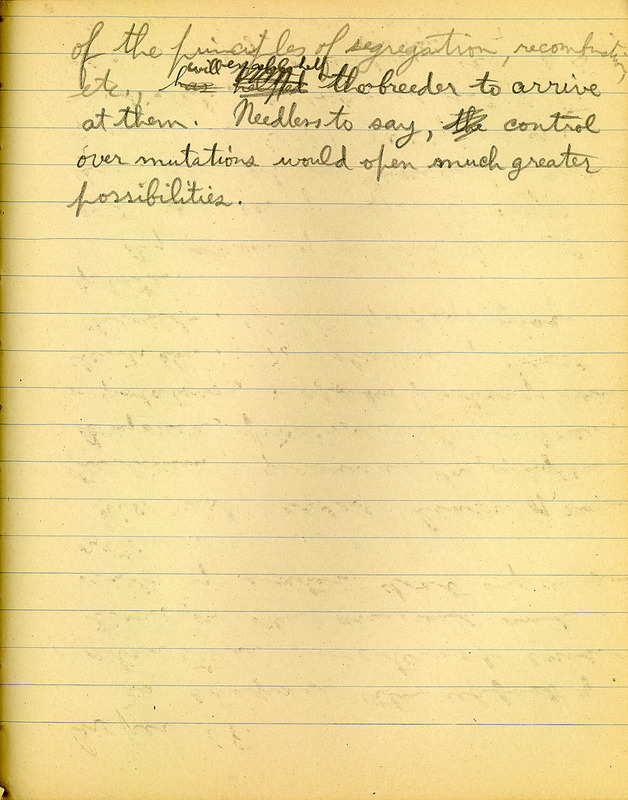 of the principles of segregation, recombination,
will
etc., has helped the breeder to arrive
at them. Needless to say, the control
over mutations would open much greater
possibilities.